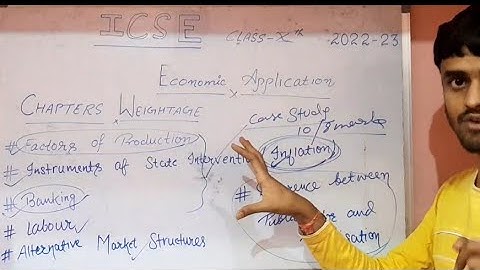 ICSE CLASS-Xth 2022-23
Economic Application
CHAPTERS WEIGHTAGE
# Factors of Production
# Instruments of State Interventi
# Banking
# Labour
# Alternative Market Structures
Case Study
10 / 8 marks
Inflation
# between
and